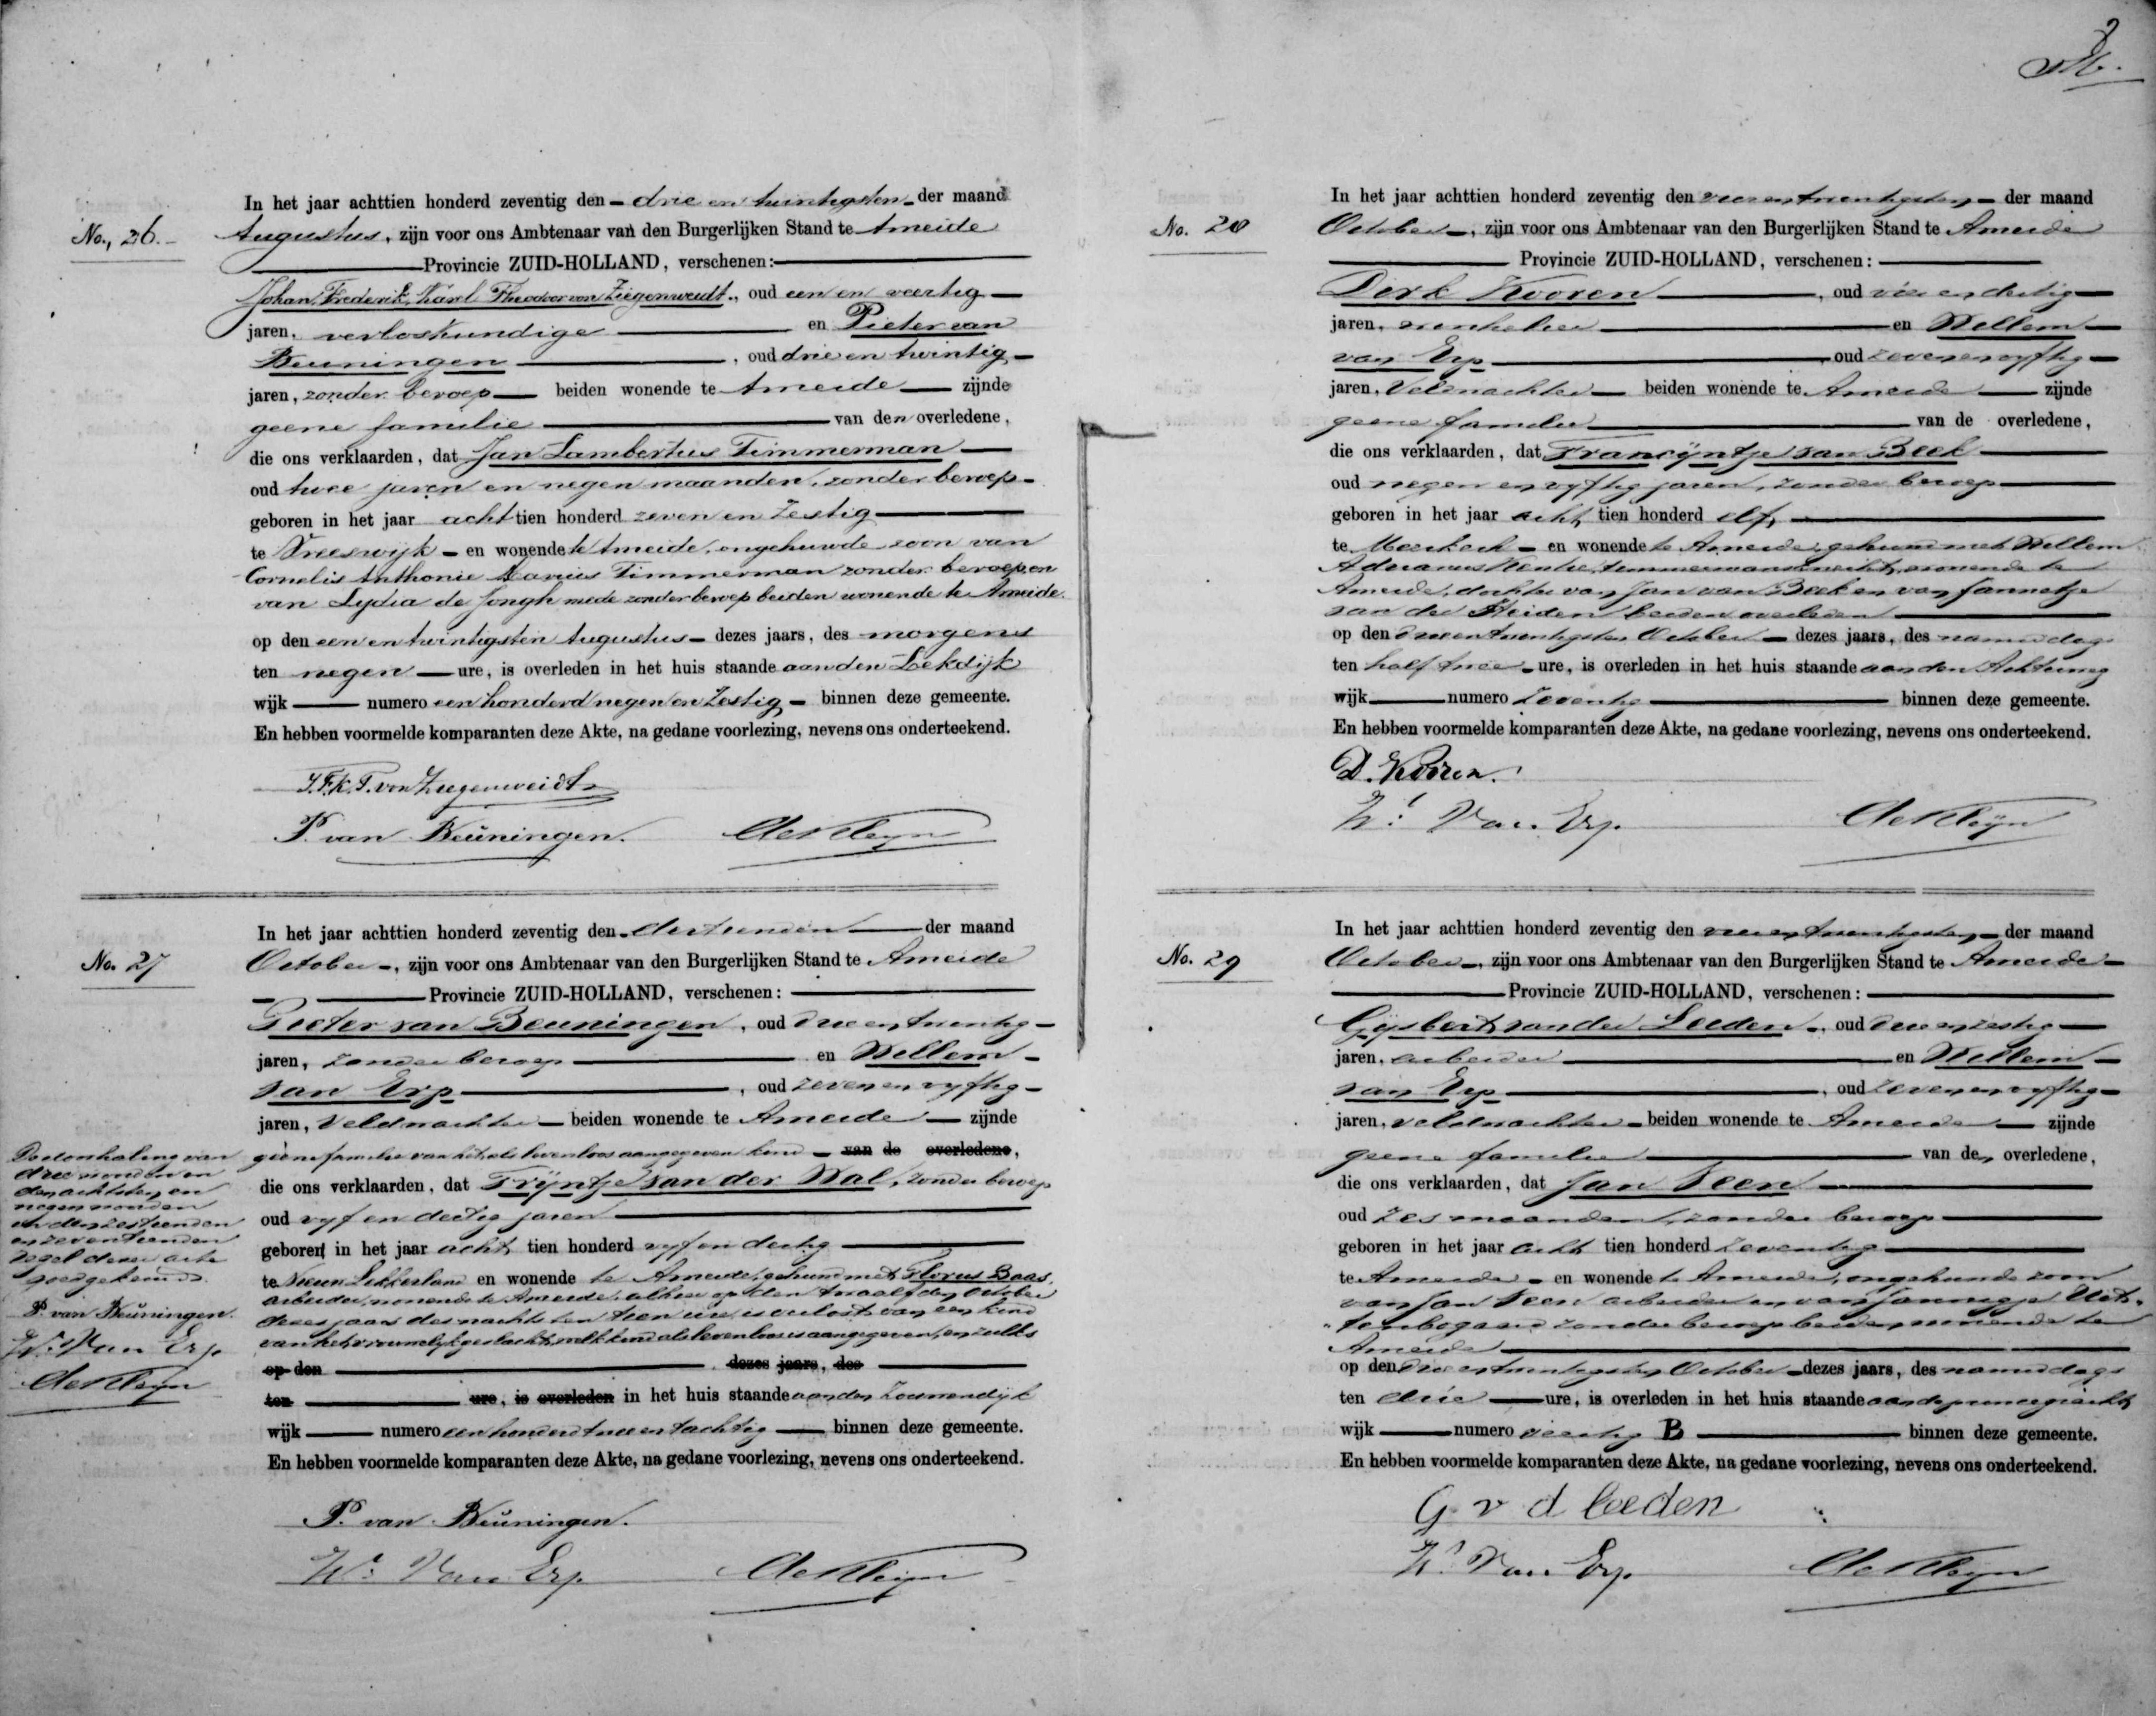 No. 26.
In het jaar achttien honderd zeventig den drie en twintigsten der maand
Augustus, zijn voor ons Ambtenaar van den Burgerlijken Stand te Ameide
Provincie ZUID-HOLLAND, verschenen:
Johan Frederik Karel Theodoor von Ziegenweidt, oud een en veertig
jaren, verloskundige en Pieter van
Beuningen, oud drie en twintig
jaren, zonder beroep beiden wonende te Ameide zijnde
geene familie van den overledene,
die ons verklaarden, dat Jan Lambertus Timmerman
oud twee jaren en negen maanden, zonder beroep
geboren in het jaar achttien honderd zeven en Zestig
te Vreeswijk en wonende te Ameide, ongehuwde zoon van
Cornelis Anthonie Marius Timmerman zonder beroep en
van Lydia de Jongh mede zonder beroep beiden wonende te Ameide.
op den een en twintigsten Augustus dezes jaars, des morgens
ten negen ure, is overleden in het huis staande aan den Lekdijk
wijk numero een honderd negen en Zestig binnen deze gemeente.
En hebben voormelde komparanten deze Akte, na gedane voorlezing, nevens ons onderteekend.
J.F.K.T. von Ziegenweidt
P. van Beuningen.
No. 27
In het jaar achttien honderd zeventig den dertienden der maand
October, zijn voor ons Ambtenaar van den Burgerlijken Stand te Ameide
Provincie ZUID-HOLLAND, verschenen:
Pieter van Beuningen, oud drie en twintig
jaren, zonder beroep en Willem
van Erp, oud zeven en vyftig
jaren, Veldwachter beiden wonende te Ameide zijnde
geene familie van het als levenloos aangegeven kind van de overledene,
die ons verklaarden, dat Trijntje van der Wal, zonder beroep
oud vyf en dertig jaren
geboren in het jaar acht tien honderd vyf en dertig
te Nieuw Lekkerland en wonende te Ameide, gehuwd met Florus Baas,
arbeider, wonende te Ameide, alhier op den twaalfden October
dezes jaars des nachts ten tien ure is verlost van een kind
van het vrouwelijk geslacht, welk kind als levenloos is aangegeven, en zulks
op den dezes jaars, des
ten ure, is overleden in het huis staande aan den Zouwendijk
wijk numero een honderd twee en tachtig binnen deze gemeente.
En hebben voormelde komparanten deze Akte, na gedane voorlezing, nevens ons onderteekend.
Doorhaling van
drie woorden in
den achtsten en
negen woorden
in den zestienden
en zeventienden
regel dezer acte
goedgekeurd.
P. van Beuningen.
W. Van Erp
P. van Beuningen.
W. Van Erp
No. 28
In het jaar achttien honderd zeventig den vier en twintigsten der maand
October, zijn voor ons Ambtenaar van den Burgerlijken Stand te Ameide
Provincie ZUID-HOLLAND, verschenen:
Dirk Kooren, oud vier en dertig
jaren, winkelier en Willem
van Erp, oud zeven en vyftig
jaren, Veldwachter beiden wonende te Ameide zijnde
geene familie van de overledene,
die ons verklaarden, dat Francijntje van Beek
oud negen en vyftig jaren, zonder beroep
geboren in het jaar acht tien honderd elf,
te Meerkerk en wonende te Ameide, gehuwd met Willem
Adrianus timmermansknecht, wonende te
Ameide, dochter van Jan van Beek en van Jannetje
van der Heiden beiden overleden
op den drie en twintigsten October dezes jaars, des namiddags
ten half twee ure, is overleden in het huis staande aan den Achterweg
wijk numero Zeventig binnen deze gemeente.
En hebben voormelde komparanten deze Akte, na gedane voorlezing, nevens ons onderteekend.
D. Kooren.
W. Van Erp.
No. 29
In het jaar achttien honderd zeventig den vier en twintigsten der maand
October, zijn voor ons Ambtenaar van den Burgerlijken Stand te Ameide
Provincie ZUID-HOLLAND, verschenen:
Gijsbert van der Leeden, oud drie en zestig
jaren, arbeider en Willem
van Erp, oud Zeven en vyftig
jaren, veldwachter beiden wonende te Ameide zijnde
geene familie van den overledene,
die ons verklaarden, dat Jan Veen
oud Zes maanden, zonder beroep
geboren in het jaar acht tien honderd Zeventig
te Ameide en wonende te Ameide, ongehuwde zoon
van Jan Veen arbeider en van Jannigje Uit-
tenbogaard zonder beroep beiden wonende te
Ameide
op den drie en twintigsten October dezes jaars, des namiddags
ten drie ure, is overleden in het huis staande aan de prinsegracht
wijk numero veertig B binnen deze gemeente.
En hebben voormelde komparanten deze Akte, na gedane voorlezing, nevens ons onderteekend.
G v d leeden
W. Van Erp.